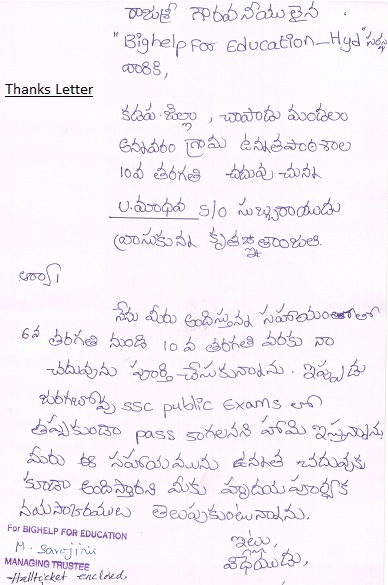 రాజశ్రీ గౌరవనీయులైన
"Bighelp For Education-Hyd" సంస్థ
వారికి,
Thanks Letter
కడప జిల్లా, చాపాడు మండలం
అన్నవరం గ్రామ ఉన్నతపాఠశాల
10వ తరగతి చదువుచున్న
U. మాధవ S/o సుబ్బరాయుడు
వ్రాసుకున్న కృతజ్ఞతాంజలి.
ఆర్యా!
నేను మీరు అందిస్తున్న సహాయంతో
6వ తరగతి నుండి 10 వ తరగతి వరకు నా
చదువును పూర్తి చేసుకున్నాను. ఇప్పుడు
జరుగబోవు SSC public Exams లో
తప్పకుండా pass కాగలనని హామి ఇస్తున్నాను.
మీరు ఈ సహాయమును ఉన్నత చదువుకు
కూడా అందిస్తారని మీకు హృదయ పూర్వక
నమస్కారములు తెలుపుకుంటున్నాను.
For BIGHELP FOR EDUCATION
M. Sarojini
MANAGING TRUSTEE
ఇట్లు,
విధేయుడు,
-Hallticket enclosed.